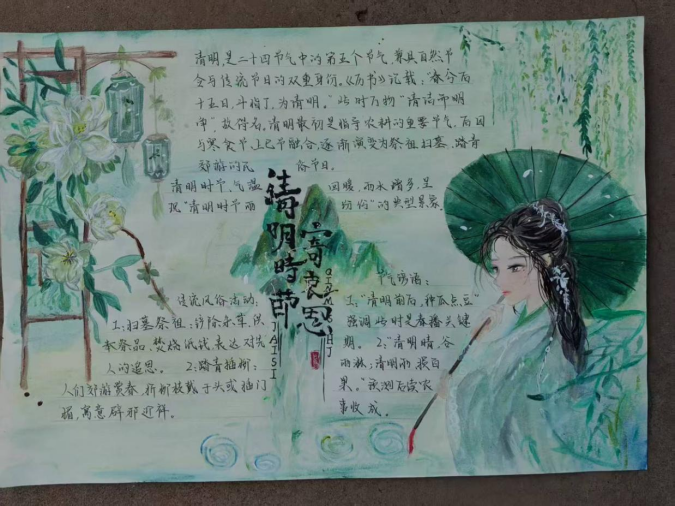 清明，是二十四节气中的第五个节气，兼具自然节
令与传统节日的双重身份。《历书》记载："春分后
十五日，斗指丁，为清明。"此时万物"清洁而明
净"，故得名。清明最初是指导农耕的重要节气，后因
与寒食节、上巳节融合，逐渐演变为祭祖扫墓、踏青
郊游的民俗节日。
清明时节，气温回暖，雨水增多，呈
现"清明时节雨纷纷"的典型景象。
清明時節
寄哀思
JAISI
传统风俗活动：
1：扫墓祭祖：清除杂草，供
奉祭品，焚烧纸钱，表达对先
人的追思。 2：踏青插柳：
人们郊游赏春，折柳枝戴于头或插门
楣，寓意辟邪迎祥。
节气谚语：
1："清明前后，种瓜点豆"
强调此时是春播关键
期。 2："清明晴，谷
雨淋；清明雨，损百
果。"预测后续农
事收成。